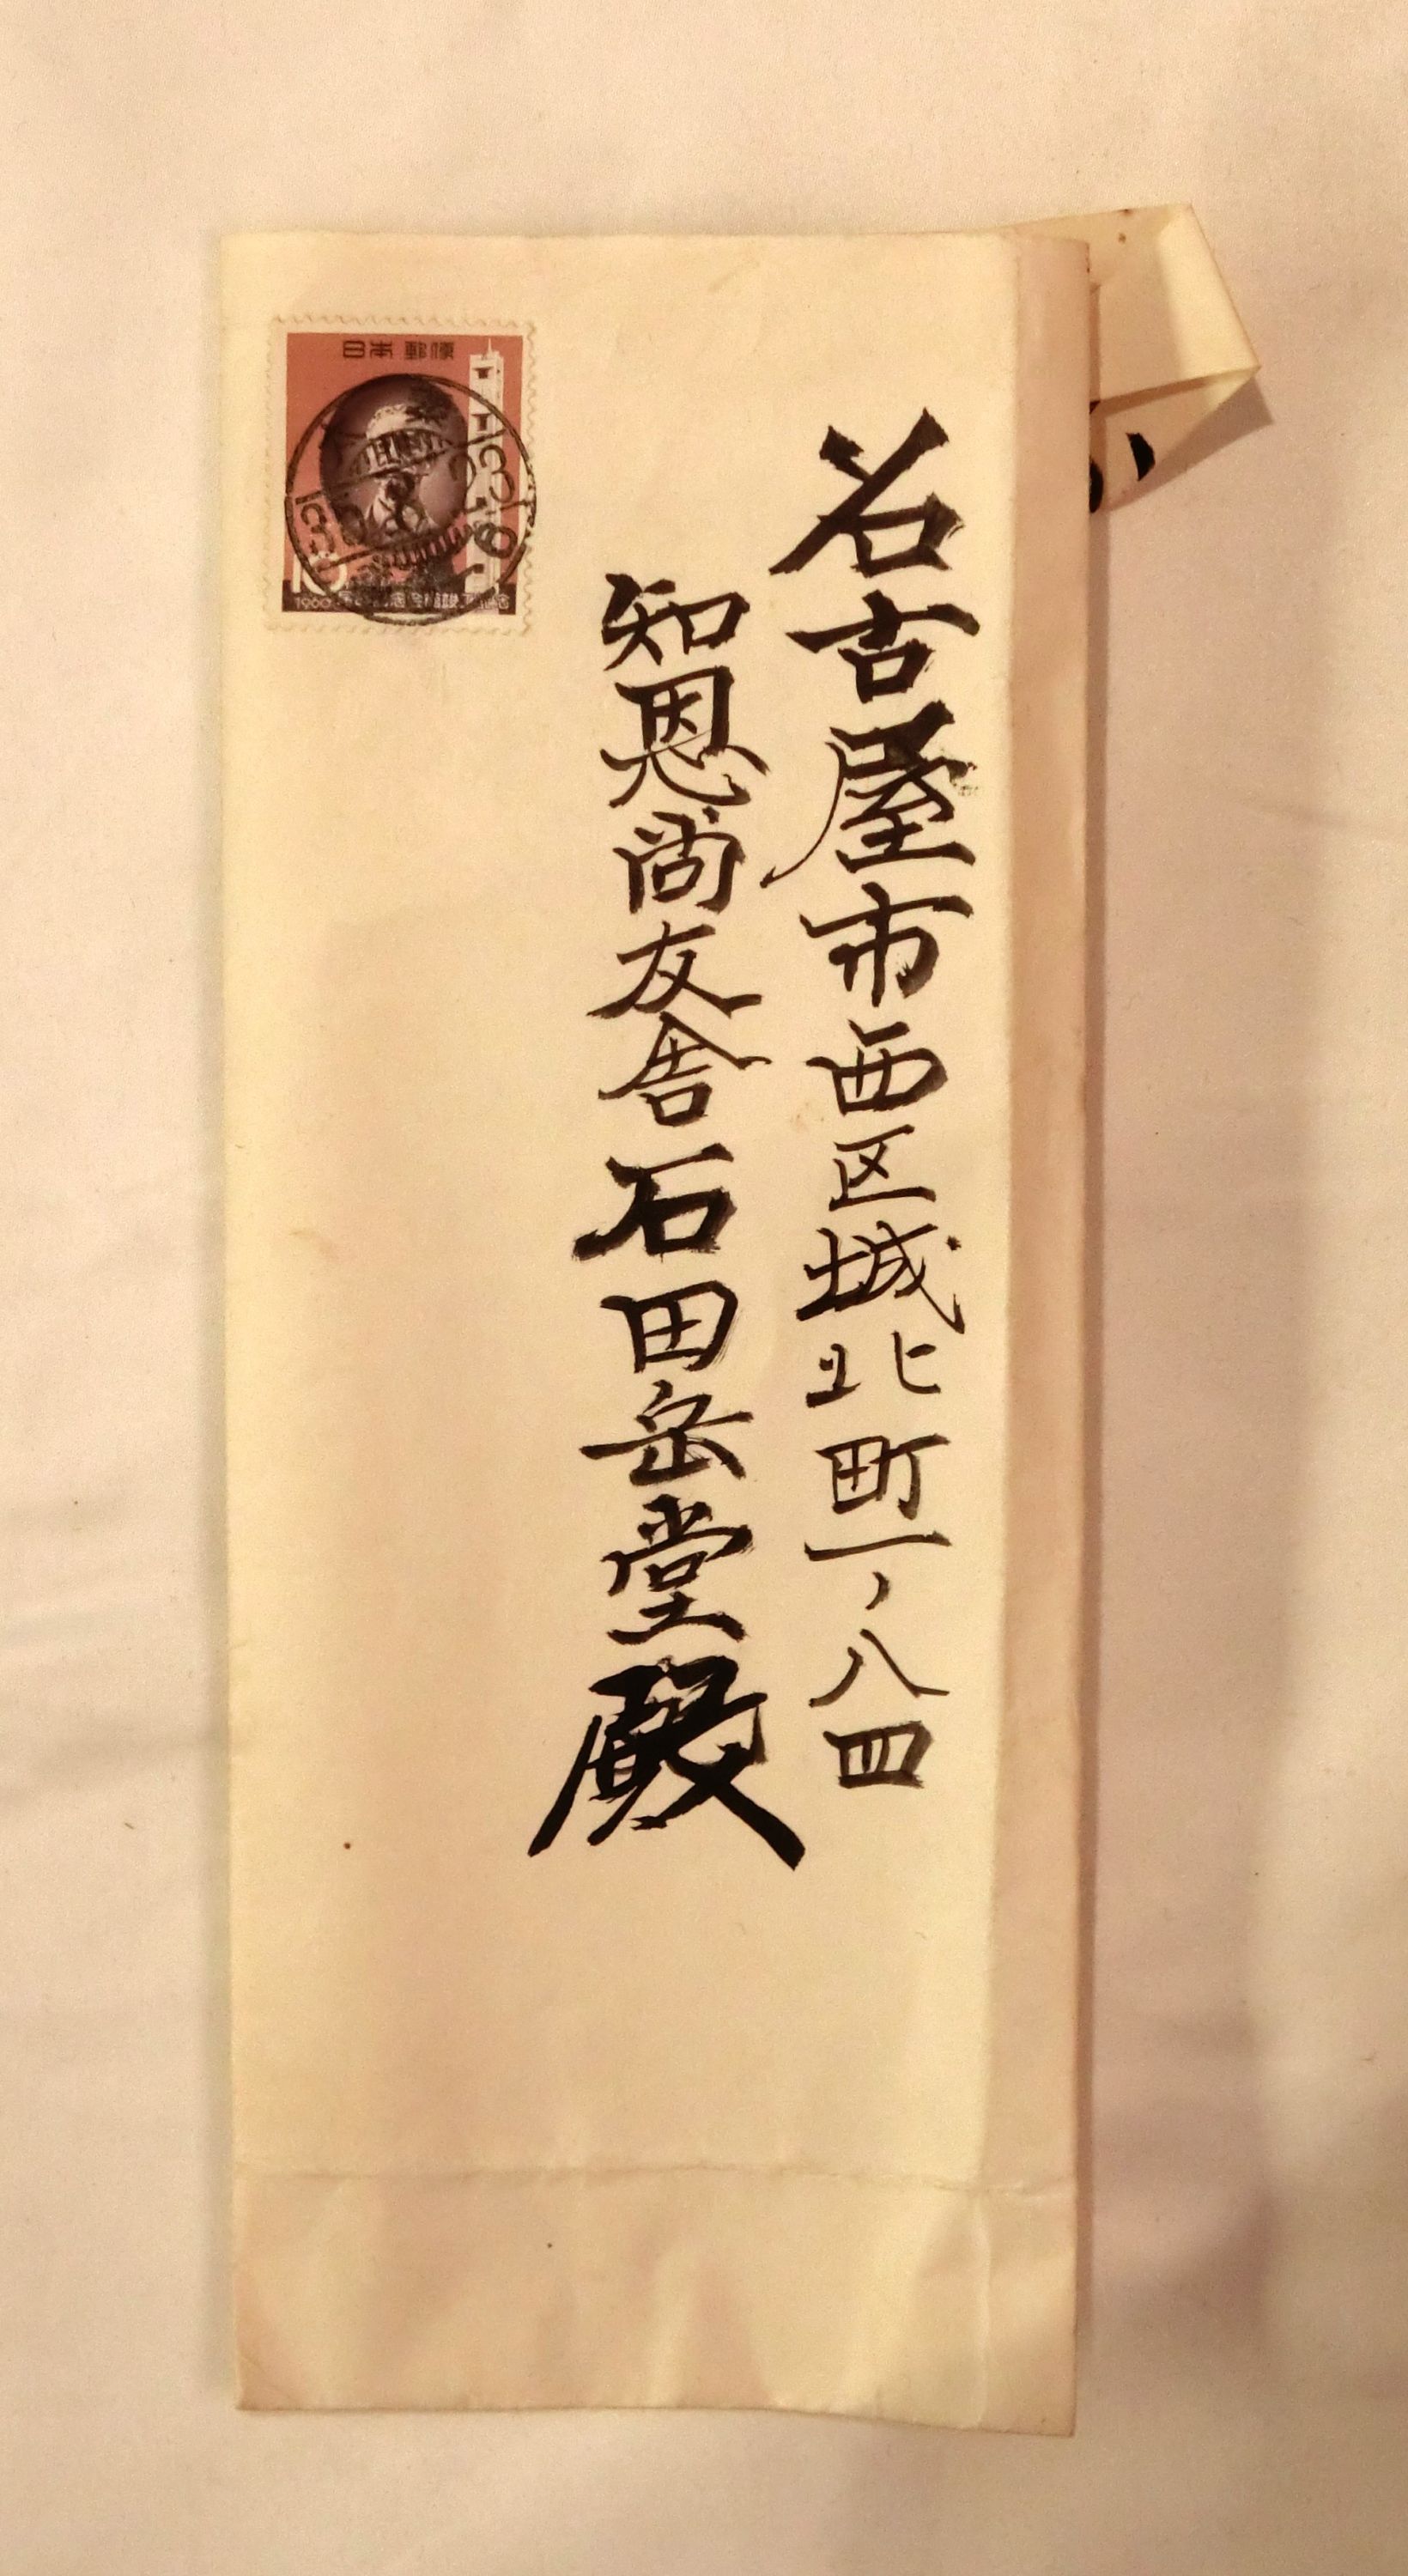 名古屋市西区城北町一、八四
知恩尚友舎石田岳堂殿
日本郵便
10
1960